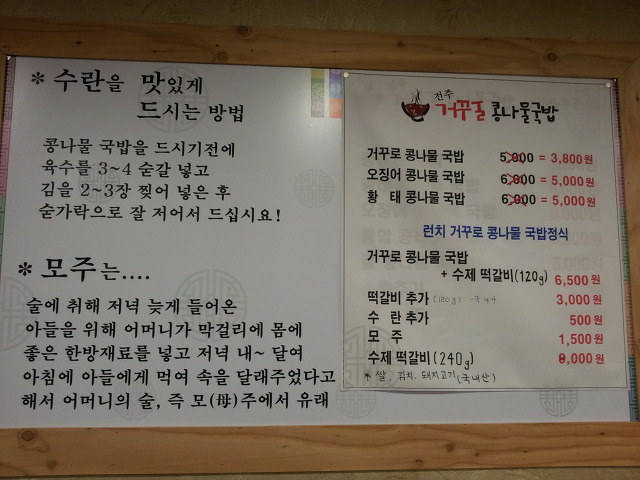 * 수란을 맛있게
드시는 방법
콩나물 국밥을 드시기전에
육수를 3~4 숟갈 넣고
김을 2~3장 찢어 넣은 후
숟가락으로 잘 저어서 드십시요!
* 모주는....
술에 취해 저녁 늦게 들어온
아들을 위해 어머니가 막걸리에 몸에
좋은 한방재료를 넣고 저녁 내~ 달여
아침에 아들에게 먹여 속을 달래주었다고
해서 어머니의 술, 즉 모(母)주에서 유래
전주
거꾸로 콩나물국밥
거꾸로 콩나물 국밥 5,000 = 3,800원
오징어 콩나물 국밥 6,000 = 5,000원
황 태 콩나물 국밥 6,000 = 5,000원
런치 거꾸로 콩나물 국밥정식
거꾸로 콩나물 국밥
+ 수제 떡갈비(120g) 6,500원
떡갈비 추가 (120g) 3,000원
수 란 추가 500원
모 주 1,500원
수제 떡갈비 (240g) ,000원
* 쌀. 김치. 돼지고기(국내산)